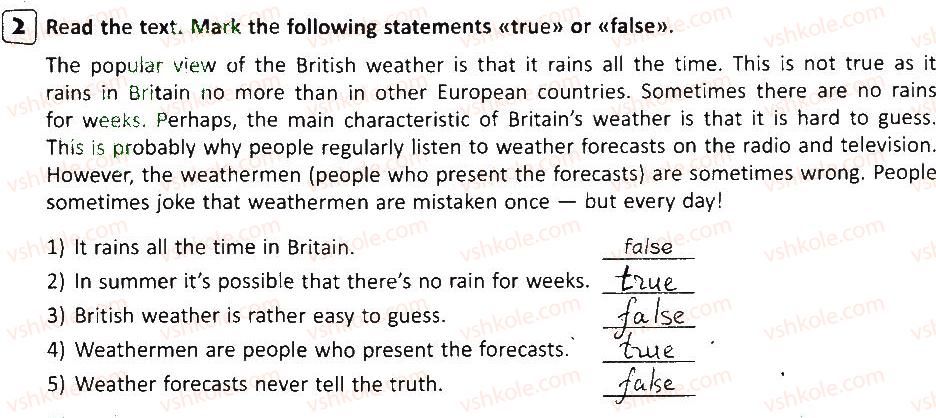 2 Read the text. Mark the following statements «true» or «false».
The popular view of the British weather is that it rains all the time. This is not true as it
rains in Britain no more than in other European countries. Sometimes there are no rains
for weeks. Perhaps, the main characteristic of Britain's weather is that it is hard to guess.
This is probably why people regularly listen to weather forecasts on the radio and television.
However, the weathermen (people who present the forecasts) are sometimes wrong. People
sometimes joke that weathermen are mistaken once — but every day!
1) It rains all the time in Britain. false
2) In summer it's possible that there's no rain for weeks. true
3) British weather is rather easy to guess. false
4) Weathermen are people who present the forecasts. true
5) Weather forecasts never tell the truth. false
vshkole.com